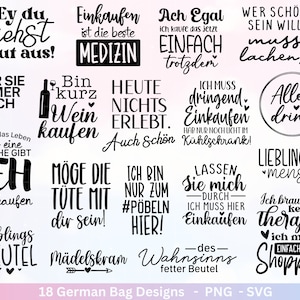 Ey du
siehst
gut aus!
Einkaufen
ist die beste
MEDIZIN
Ach Egal
ich kaufe das jetzt
EINFACH
trotzdem
WER SCHÖN
SEIN WILL
muss
lachen
SIE
MER
CH
Bin
kurz
Wein
kaufen
HEUTE
NICHTS
ERLEBT.
Auch Schön
ICH MUSS
dringend
Einkaufen
HAB NUR NOCH LICHT IM
Kühlschrank!
Alles
drin
das Leben
eine
HE GIBT
ICH
kaufen
MÖGE DIE
TÜTE MIT
dir sein!
ICH BIN
NUR ZUM
#PÖBELN
HIER!
LASSEN
Sie mich
DURCH
ICH MUSS HIER
Einkaufen
LIEBLINGS
mens
Ich brauche
keine
Therapie
ich muss
EINFACH
Shoppen
lings
UTEL
Mädelskram
des
Wahnsinns
fetter Beutel
18 German Bag Designs - PNG - SVG